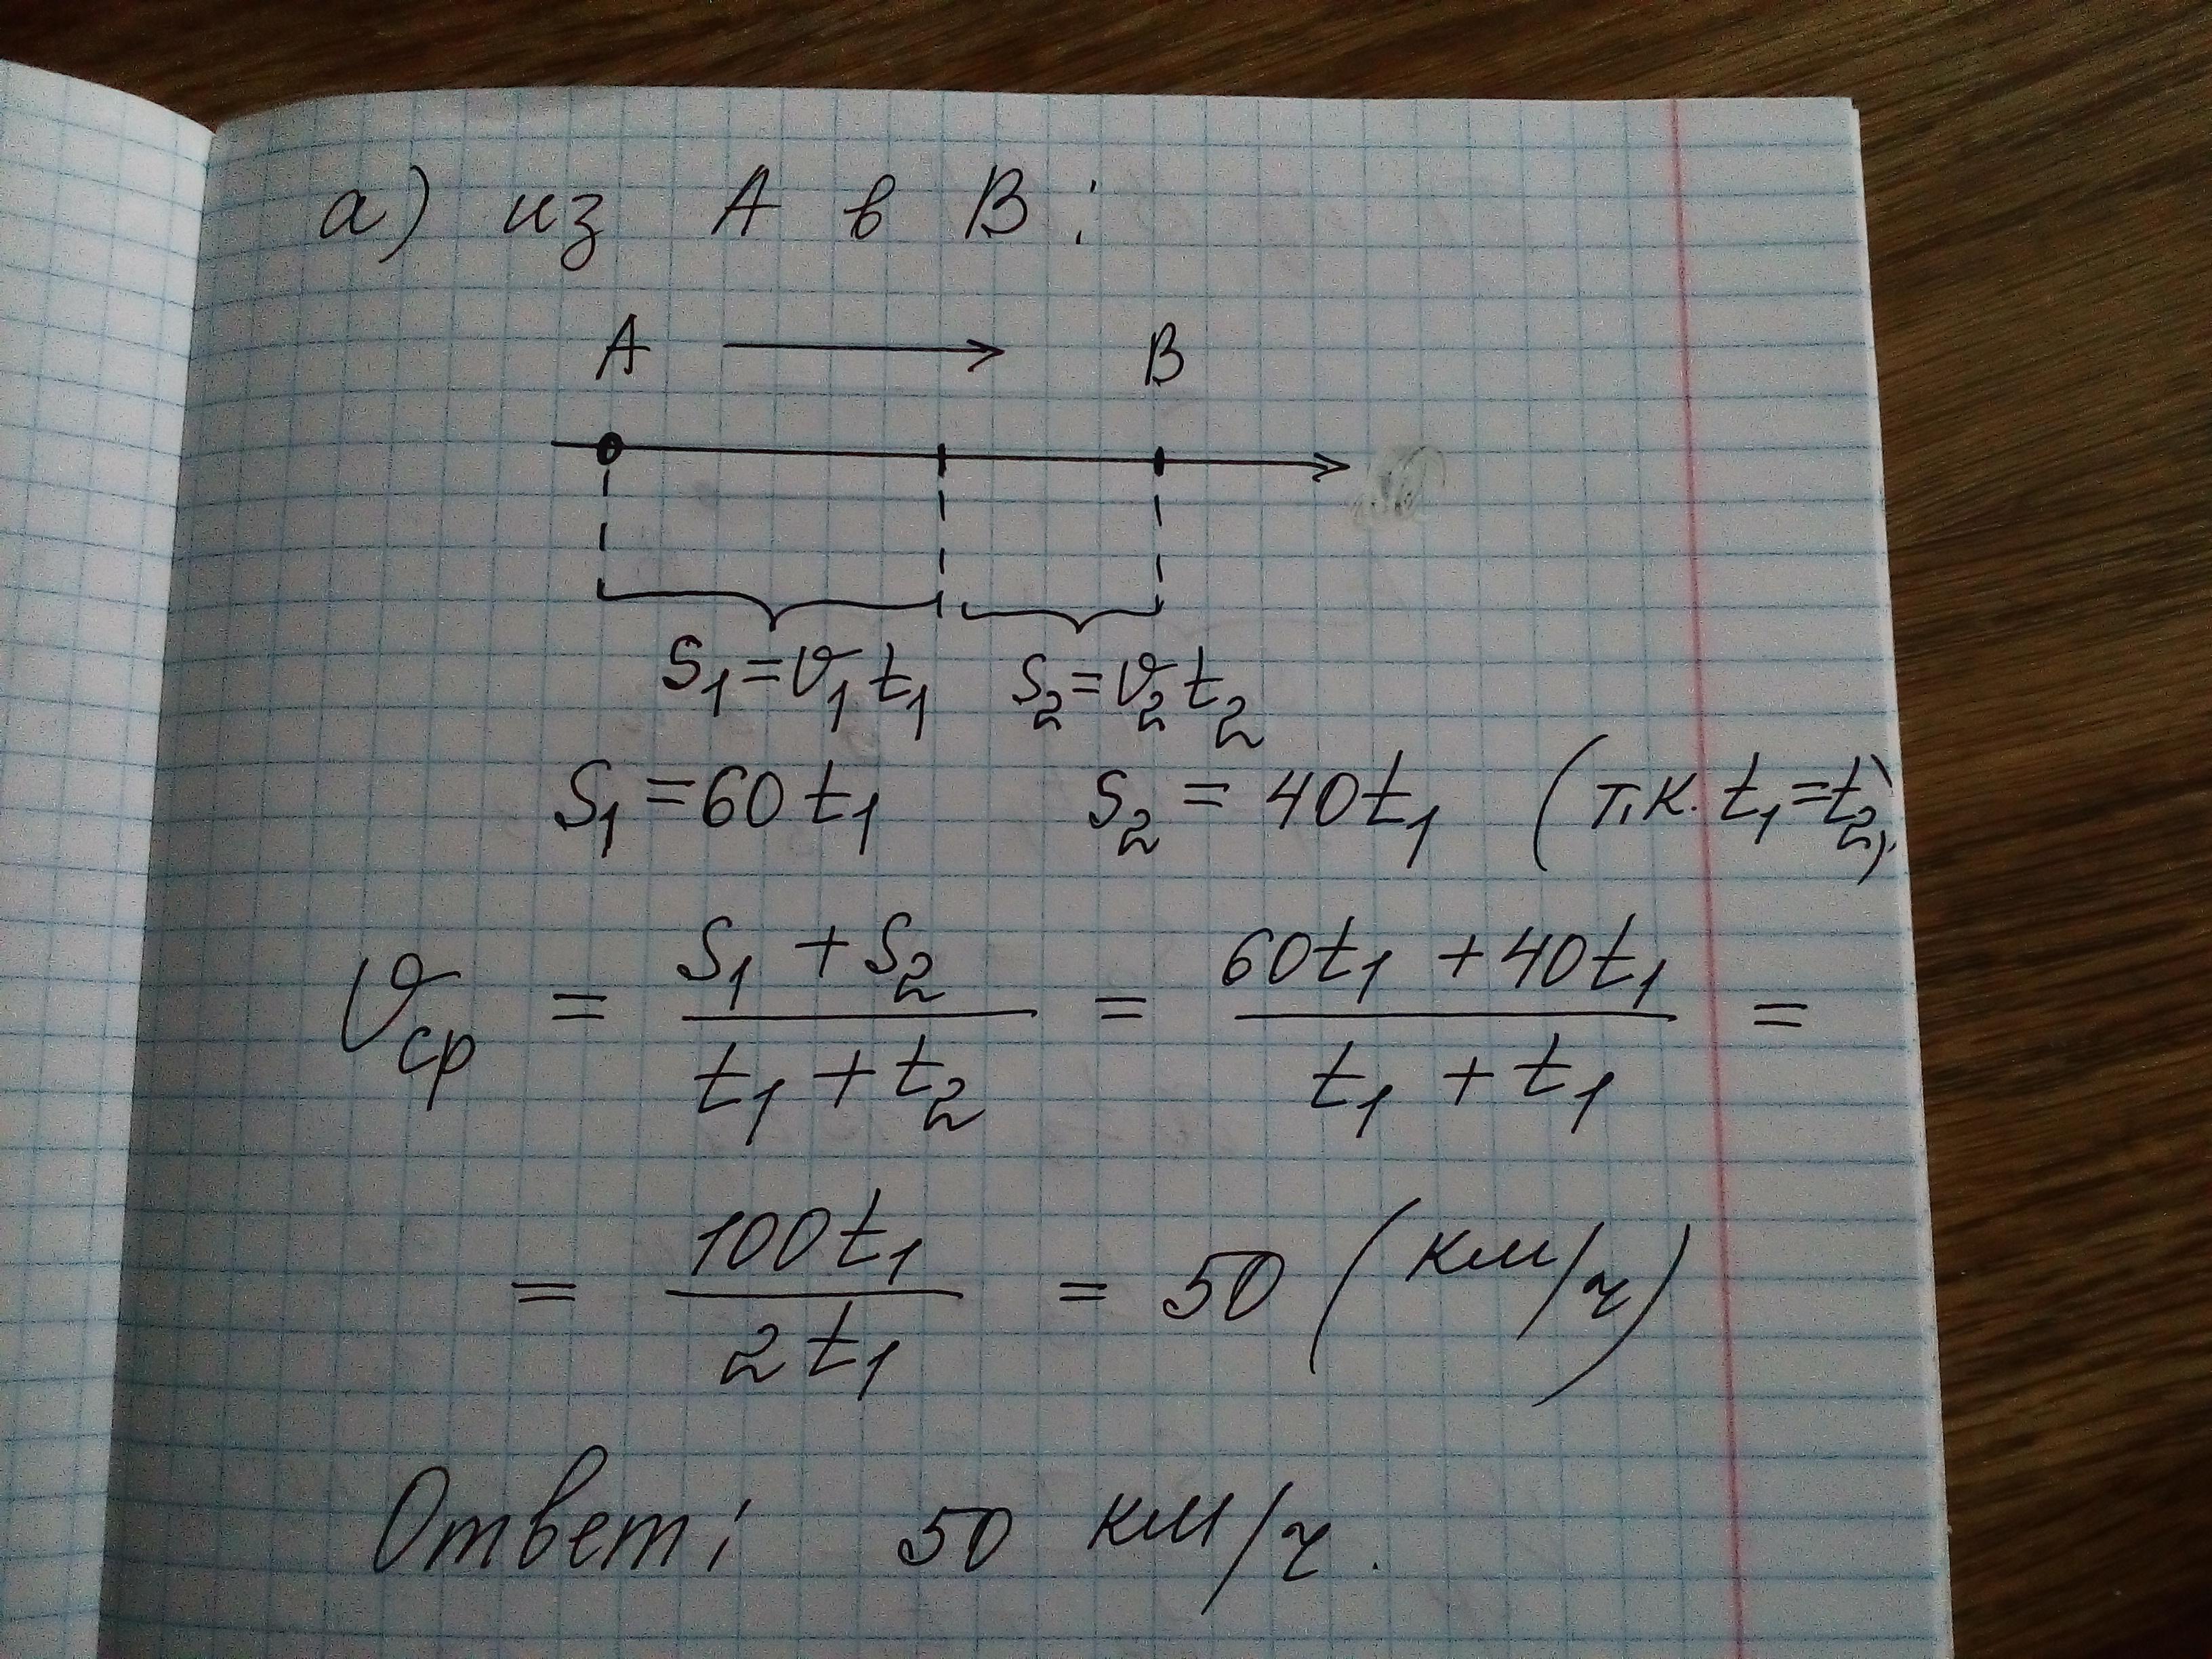 а) из А в В:
A → B
S₁=v₁t₁ S₂=v₂t₂
S₁=60t₁ S₂=40t₁ (т.к. t₁=t₂).
v_ср = (S₁+S₂)/(t₁+t₂) = (60t₁+40t₁)/(t₁+t₁) =
= 100t₁/2t₁ = 50 (км/ч)
Ответ: 50 км/ч.